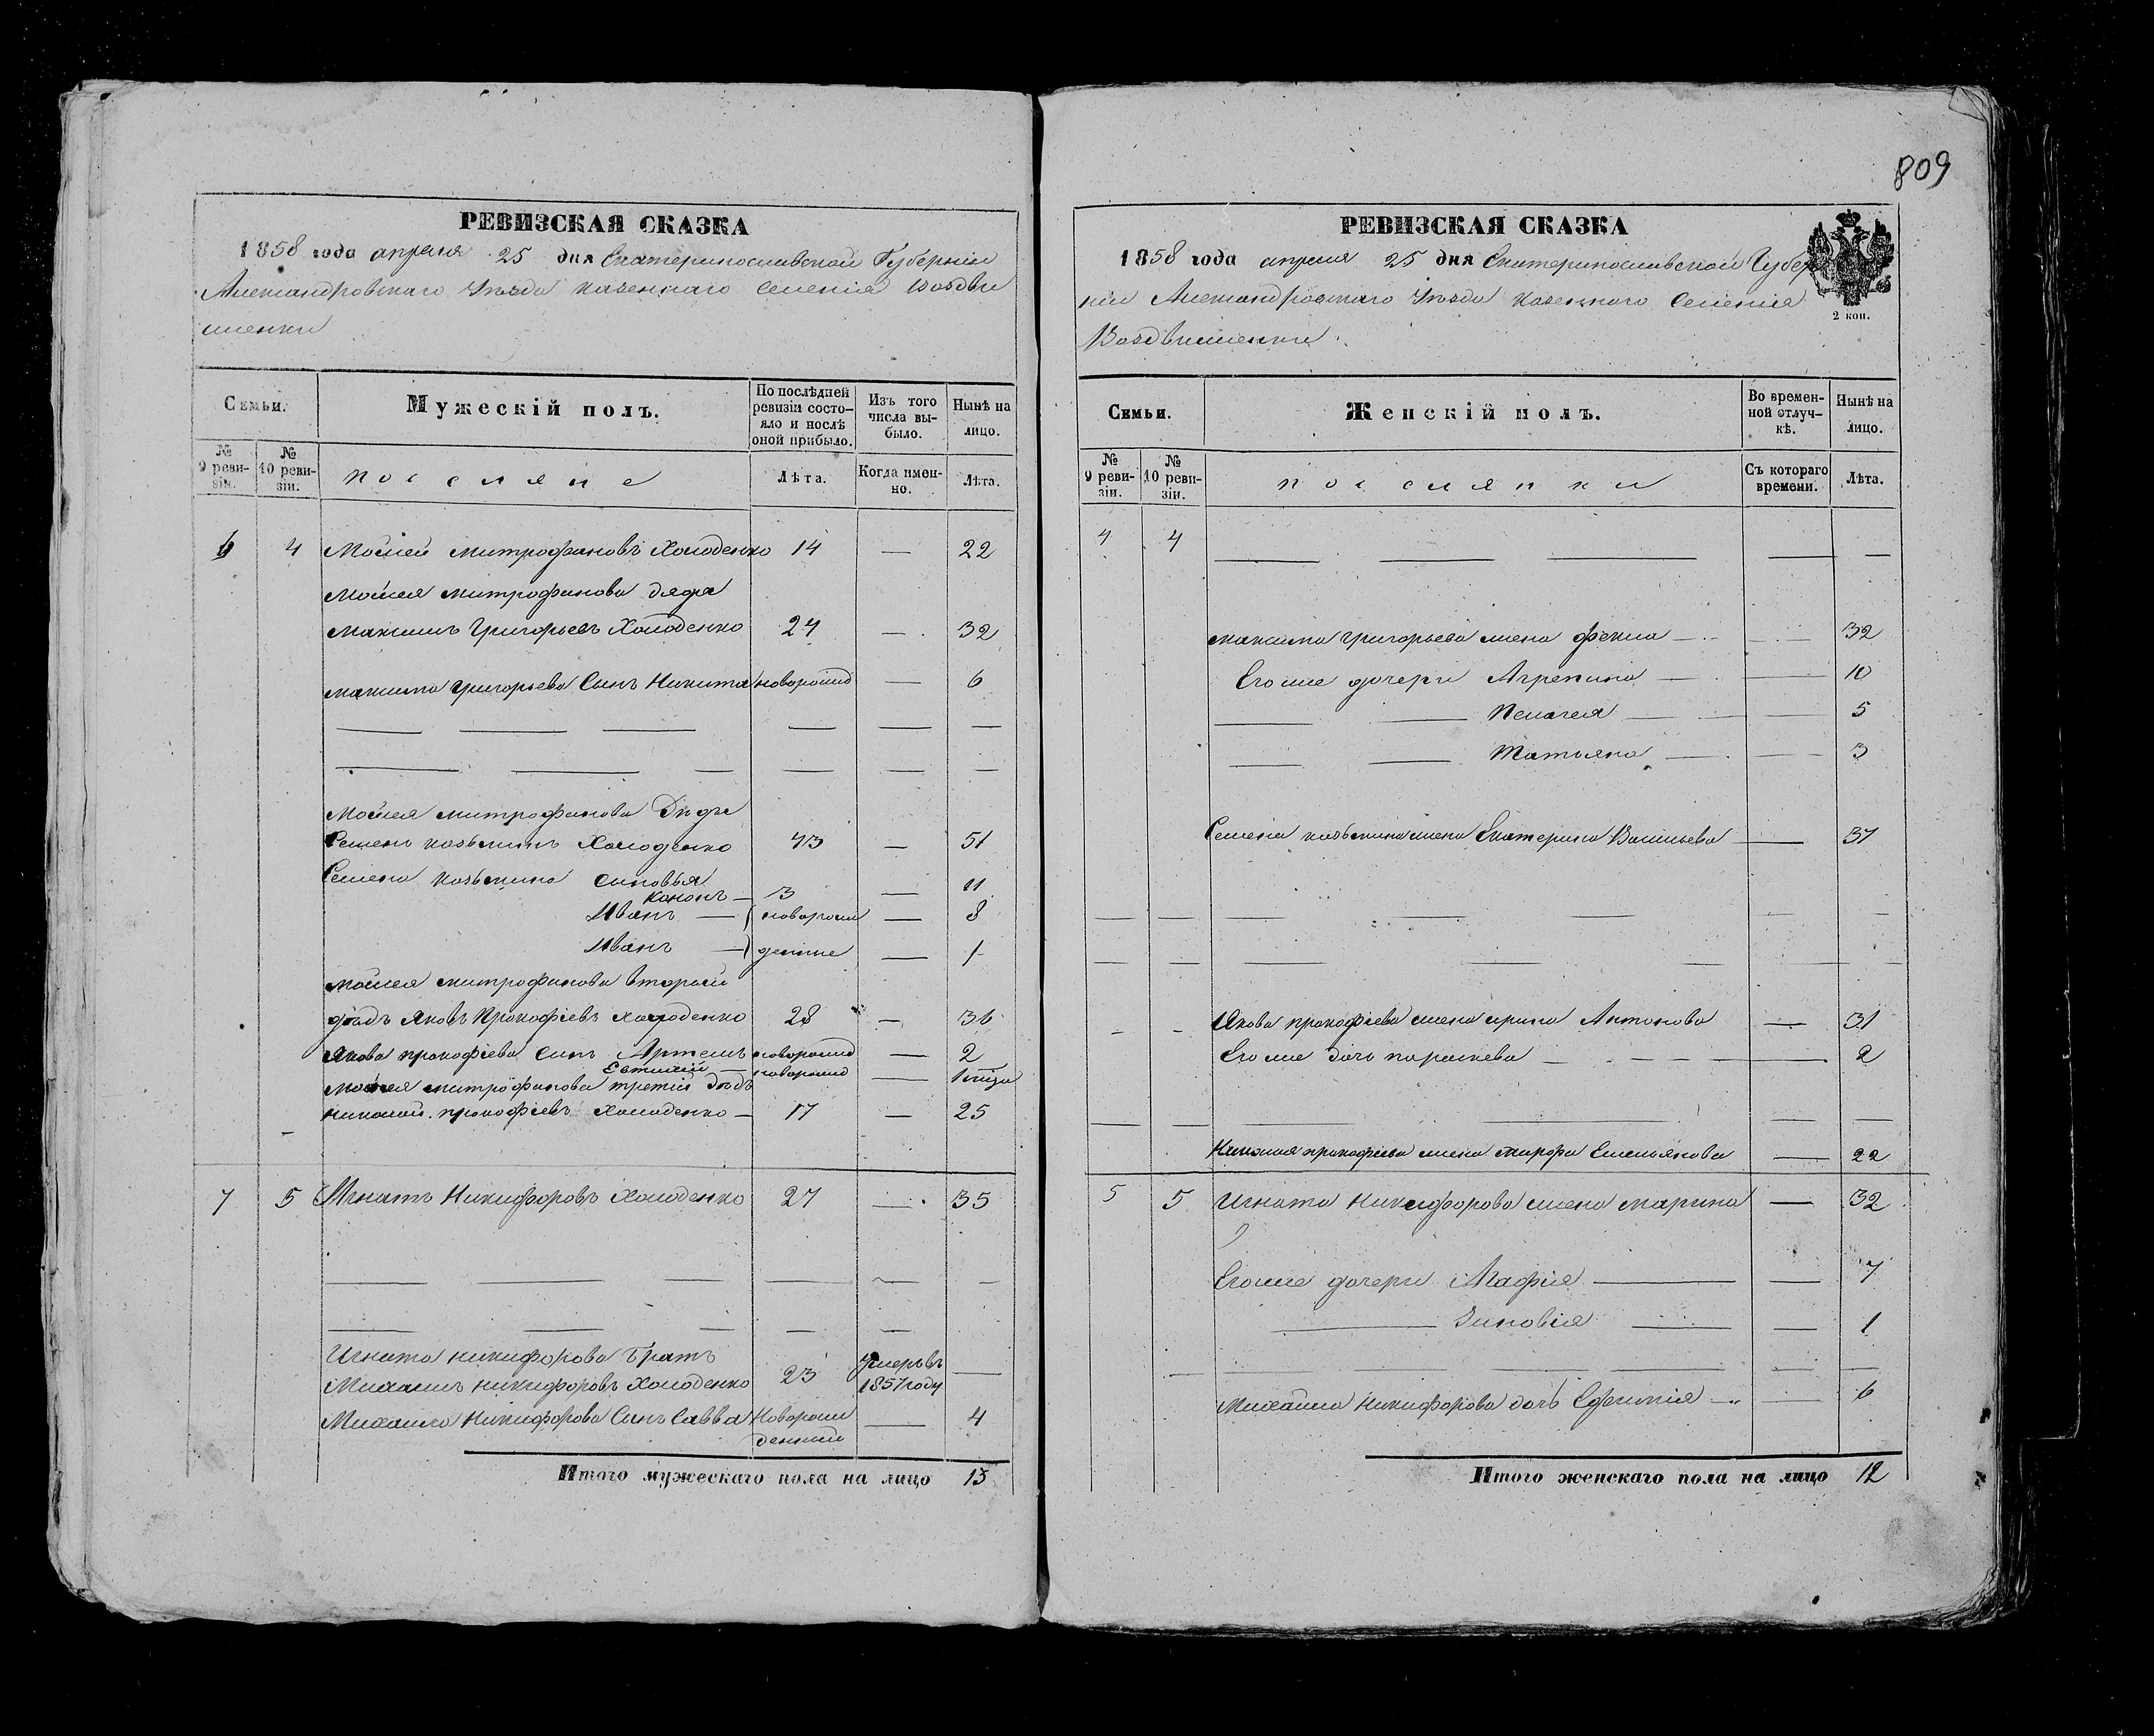 809
РЕВИЗСКАЯ СКАЗКА
1858 года апреля 25 дня Екатеринославской Губерніи
Александровского Уѣзда казенного Селенія Воздви
женки
Семьи.
Мужескій полъ.
По послѣдней ревизіи состо-яло и послѣ оной прибыло.
Изъ того числа вы-было.
Нынѣ на лицо.
№ 9 реви-зіи.
№ 10 реви-зіи.
поселяне
Лѣта.
Когда имен-но.
Лѣта.
6 4 Мойсей Митрофановъ Холоденко 14 — 22
Мойсея Митрофанова дядя
Максимъ Григорьевъ Холоденко 24 — 32
Максима Григорьева Сынъ Никита новорожд — 6
Мойсея Митрофанова Дядя
Семенъ Козьминъ Холоденко 43 — 51
Семена Козьмина Сыновья
Кононъ — 3 — 11
Иванъ — новорож — 8
Иванъ — денные — 1
Мойсея Митрофанова вторый
дядъ Яковъ Прокофіевъ Холоденко 28 — 36
Якова Прокофіева Синъ Артемъ новорожд — 2
Евтихій — новорожд — 1
Мойсея Митрофанова третій дядъ
Николай Прокофіевъ Холоденко — 17 — 25
7 5 Игнатъ Никифоровъ Холоденко 27 — 35
Игната Никифорова Братъ
Михаилъ Никифоровъ Холоденко 23 Умеръ въ 1857 году —
Михаила Никифорова Синъ Савва Новорож — 4
денный
Итого мужескаго пола на лицо 13
РЕВИЗСКАЯ СКАЗКА
1858 года апреля 25 дня Екатеринославской Губер
ніи Александровского Уѣзда казенного Селенія
Воздвиженки.
2 коп.
Семьи.
Женскій полъ.
Во времен-ной отлуч-кѣ.
Нынѣ на лицо.
№ 9 реви-зіи.
№ 10 реви-зіи.
поселянки
Съ котораго времени.
Лѣта.
4 4
Максима Григорьева жена Фекла — 32
Его же дочери Агрепина — 10
Пелагея — 5
Татьяна — 3
Семена Козьмина жена Екатерина Васильева — 37
Якова Прокофіева жена Ирина Антонова — 31
Его же дочь Параскева — 2
Николая Прокофіева жена Марфа Емельянова — 22
5 5 Игната Никифорова жена Марина — 32
Его же дочери Агафія — 7
Зиновія — 1
Михаила Никифорова дочь Ефимія — 6
Итого женскаго пола на лицо 12